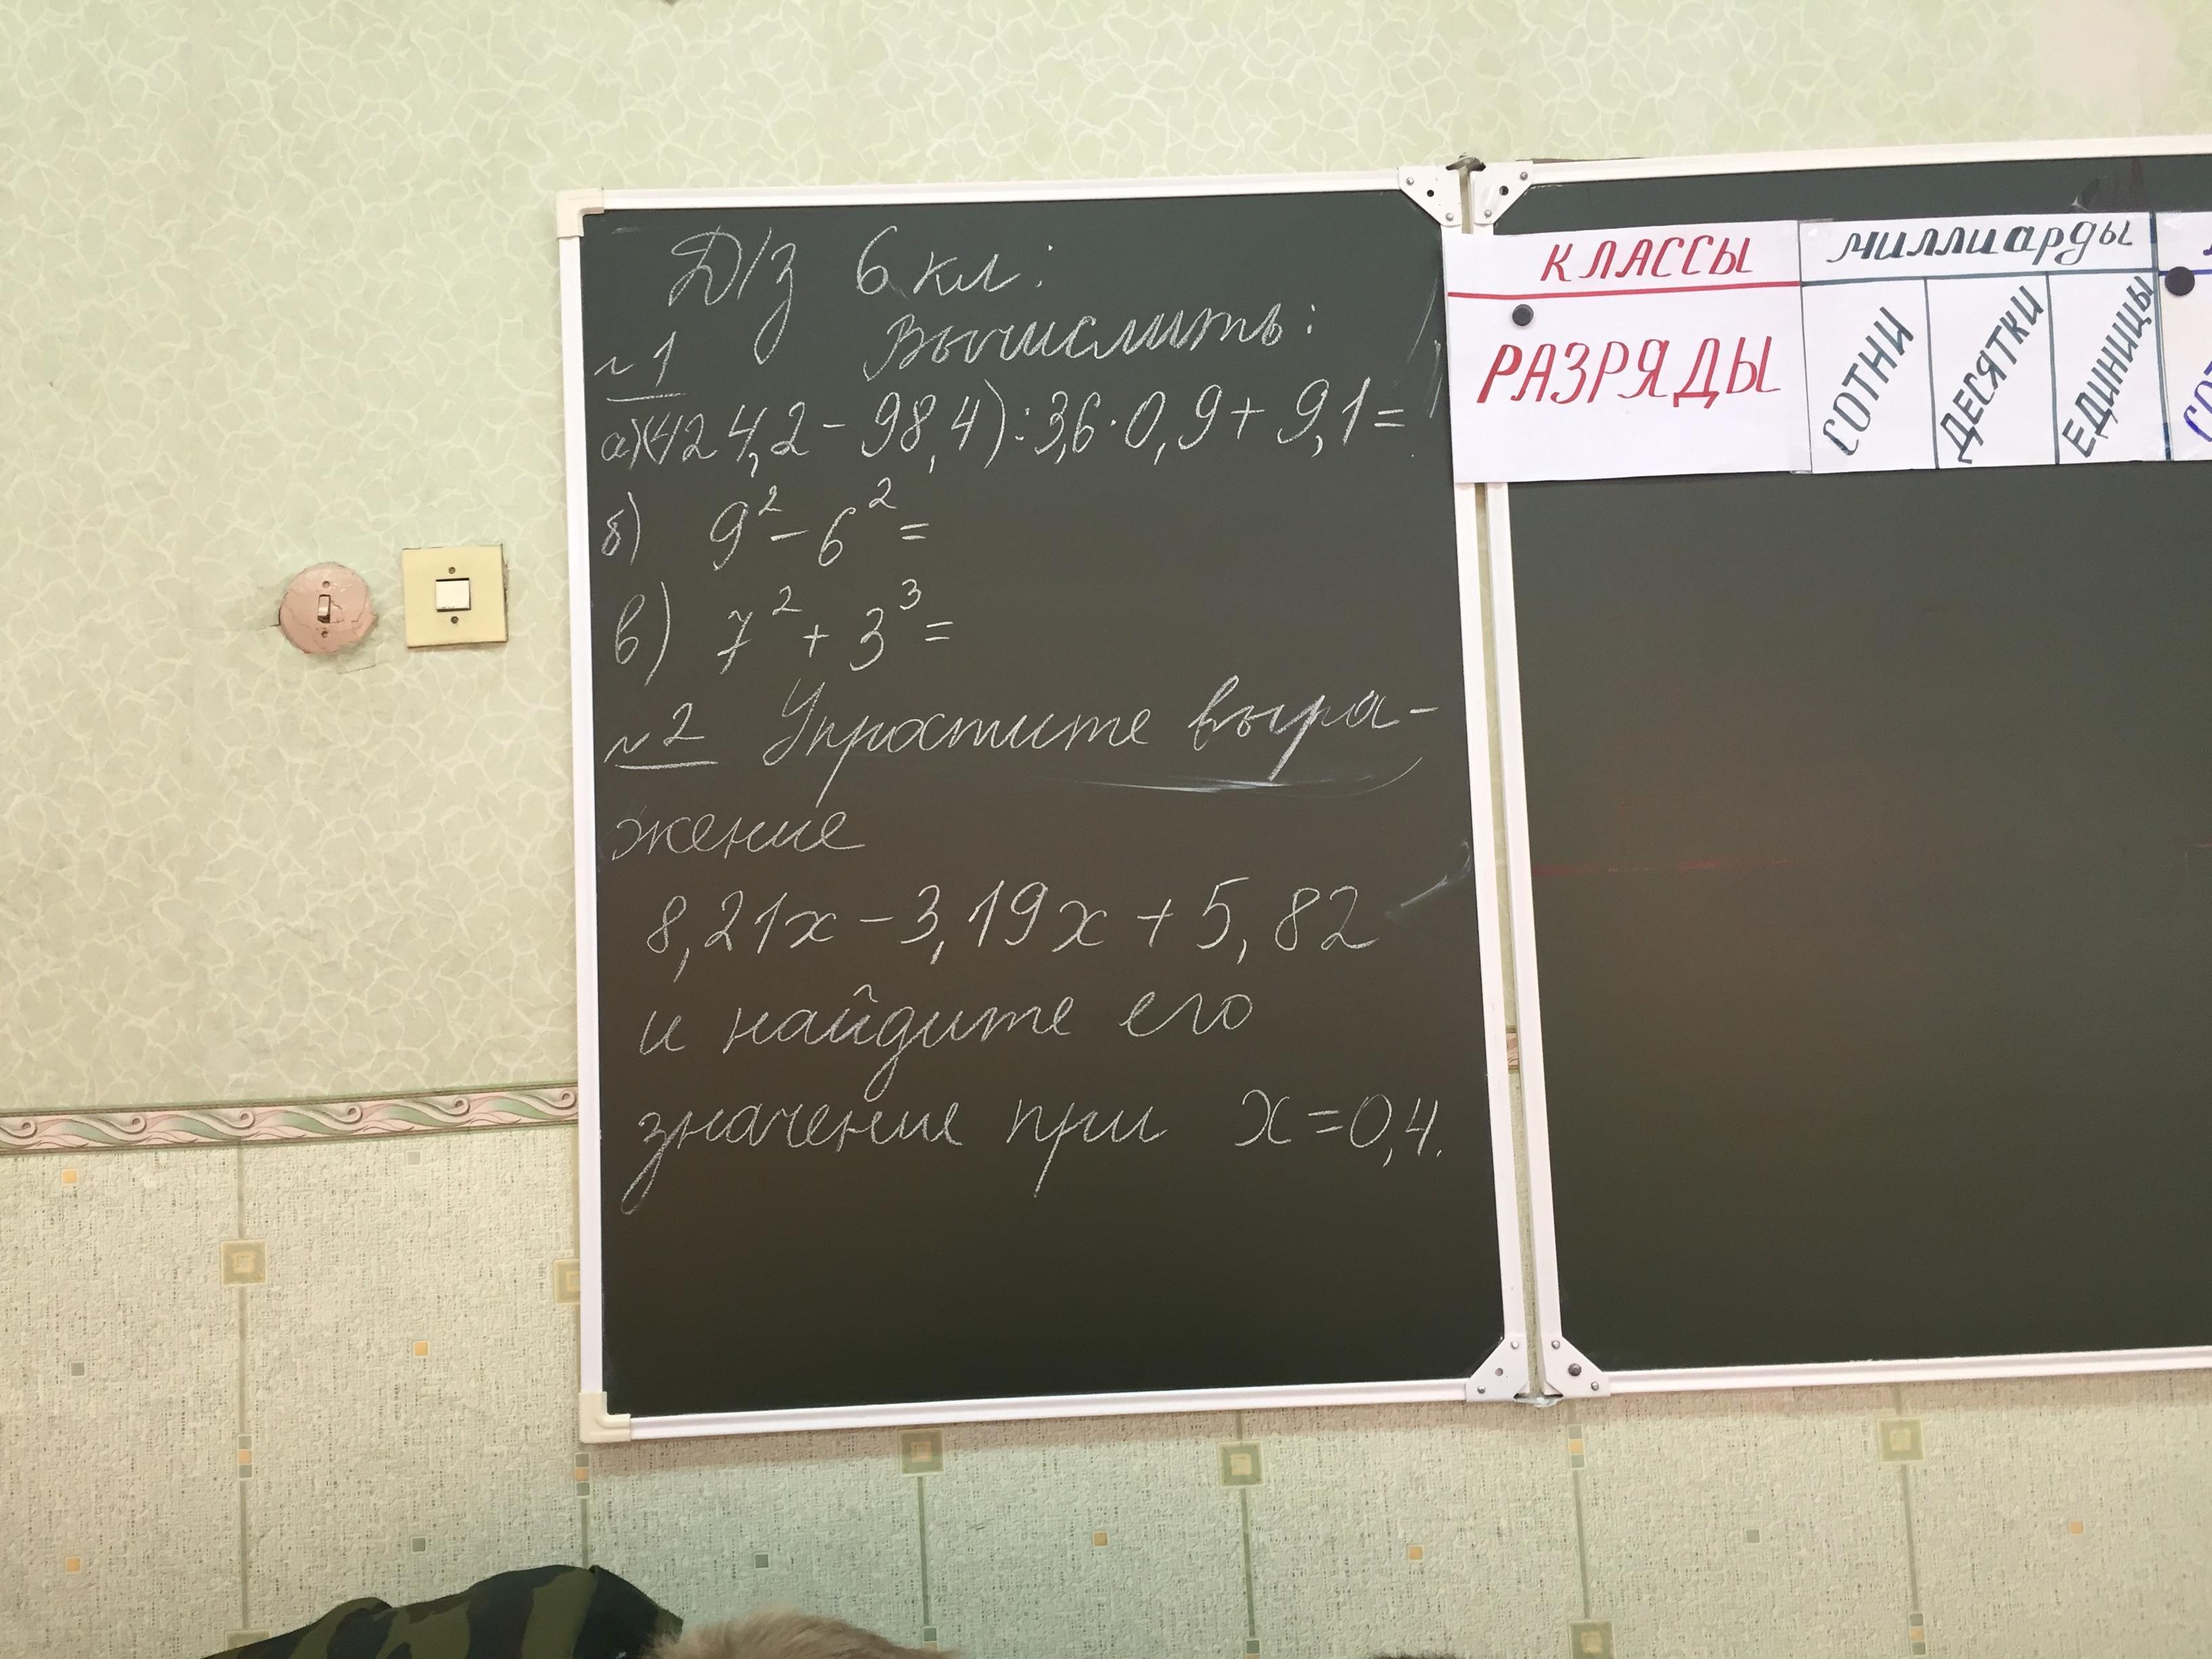 Д/з 6 кл:
№1 Вычислить:
а) (424,2 - 98,4) : 3,6 · 0,9 + 9,1 =
б) 9² - 6² =
в) 7² + 3³ =
№2 Упростите выра-
жение
8,21x - 3,19x + 5,82
и найдите его
значение при x = 0,4.
КЛАССЫ
миллиарды
РАЗРЯДЫ
СОТНИ
ДЕСЯТКИ
ЕДИНИЦЫ